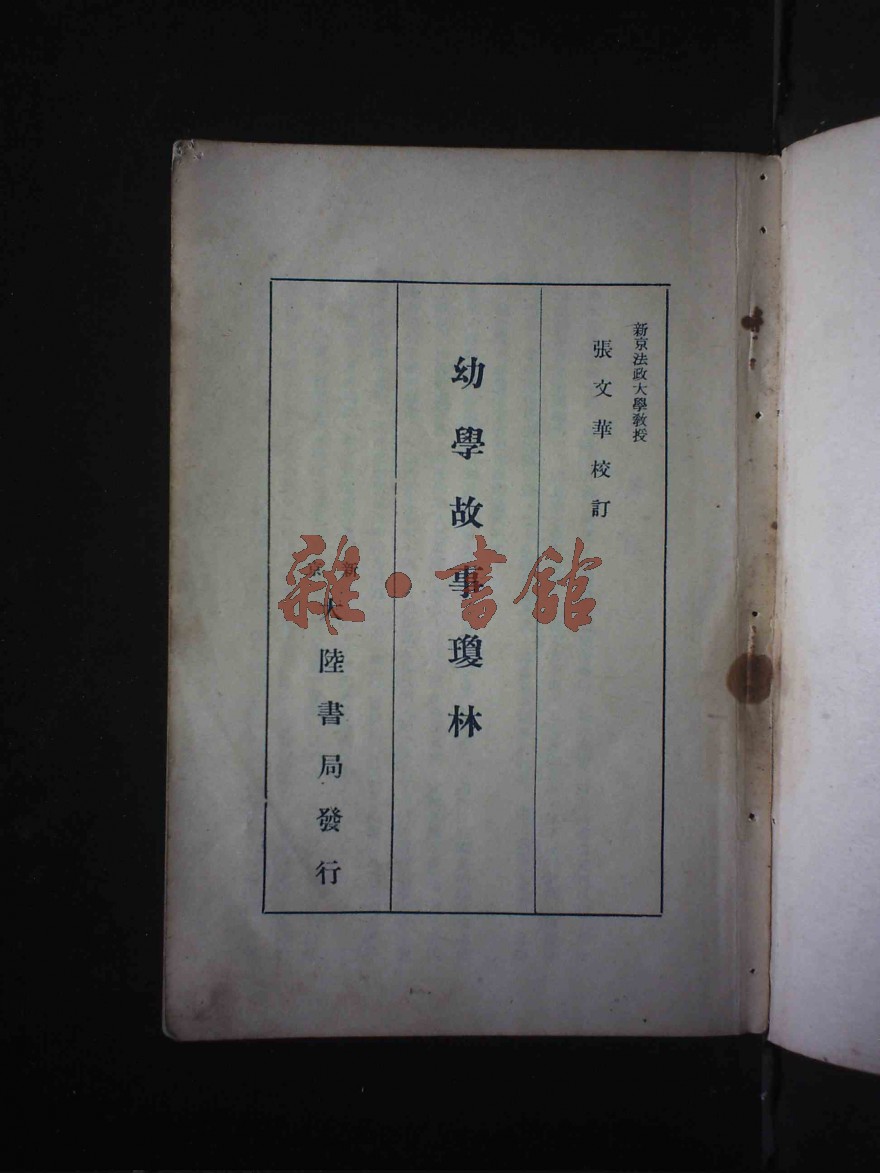 新京法政大學教授
張文華校訂
幼學故事瓊林
新京
大陸書局發行
雜·書館